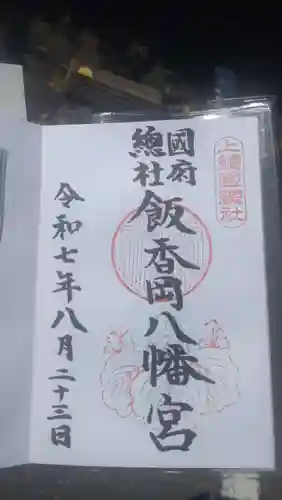 上総国総社
國府
總社
飯香岡八幡宮
令和七年八月二十三日